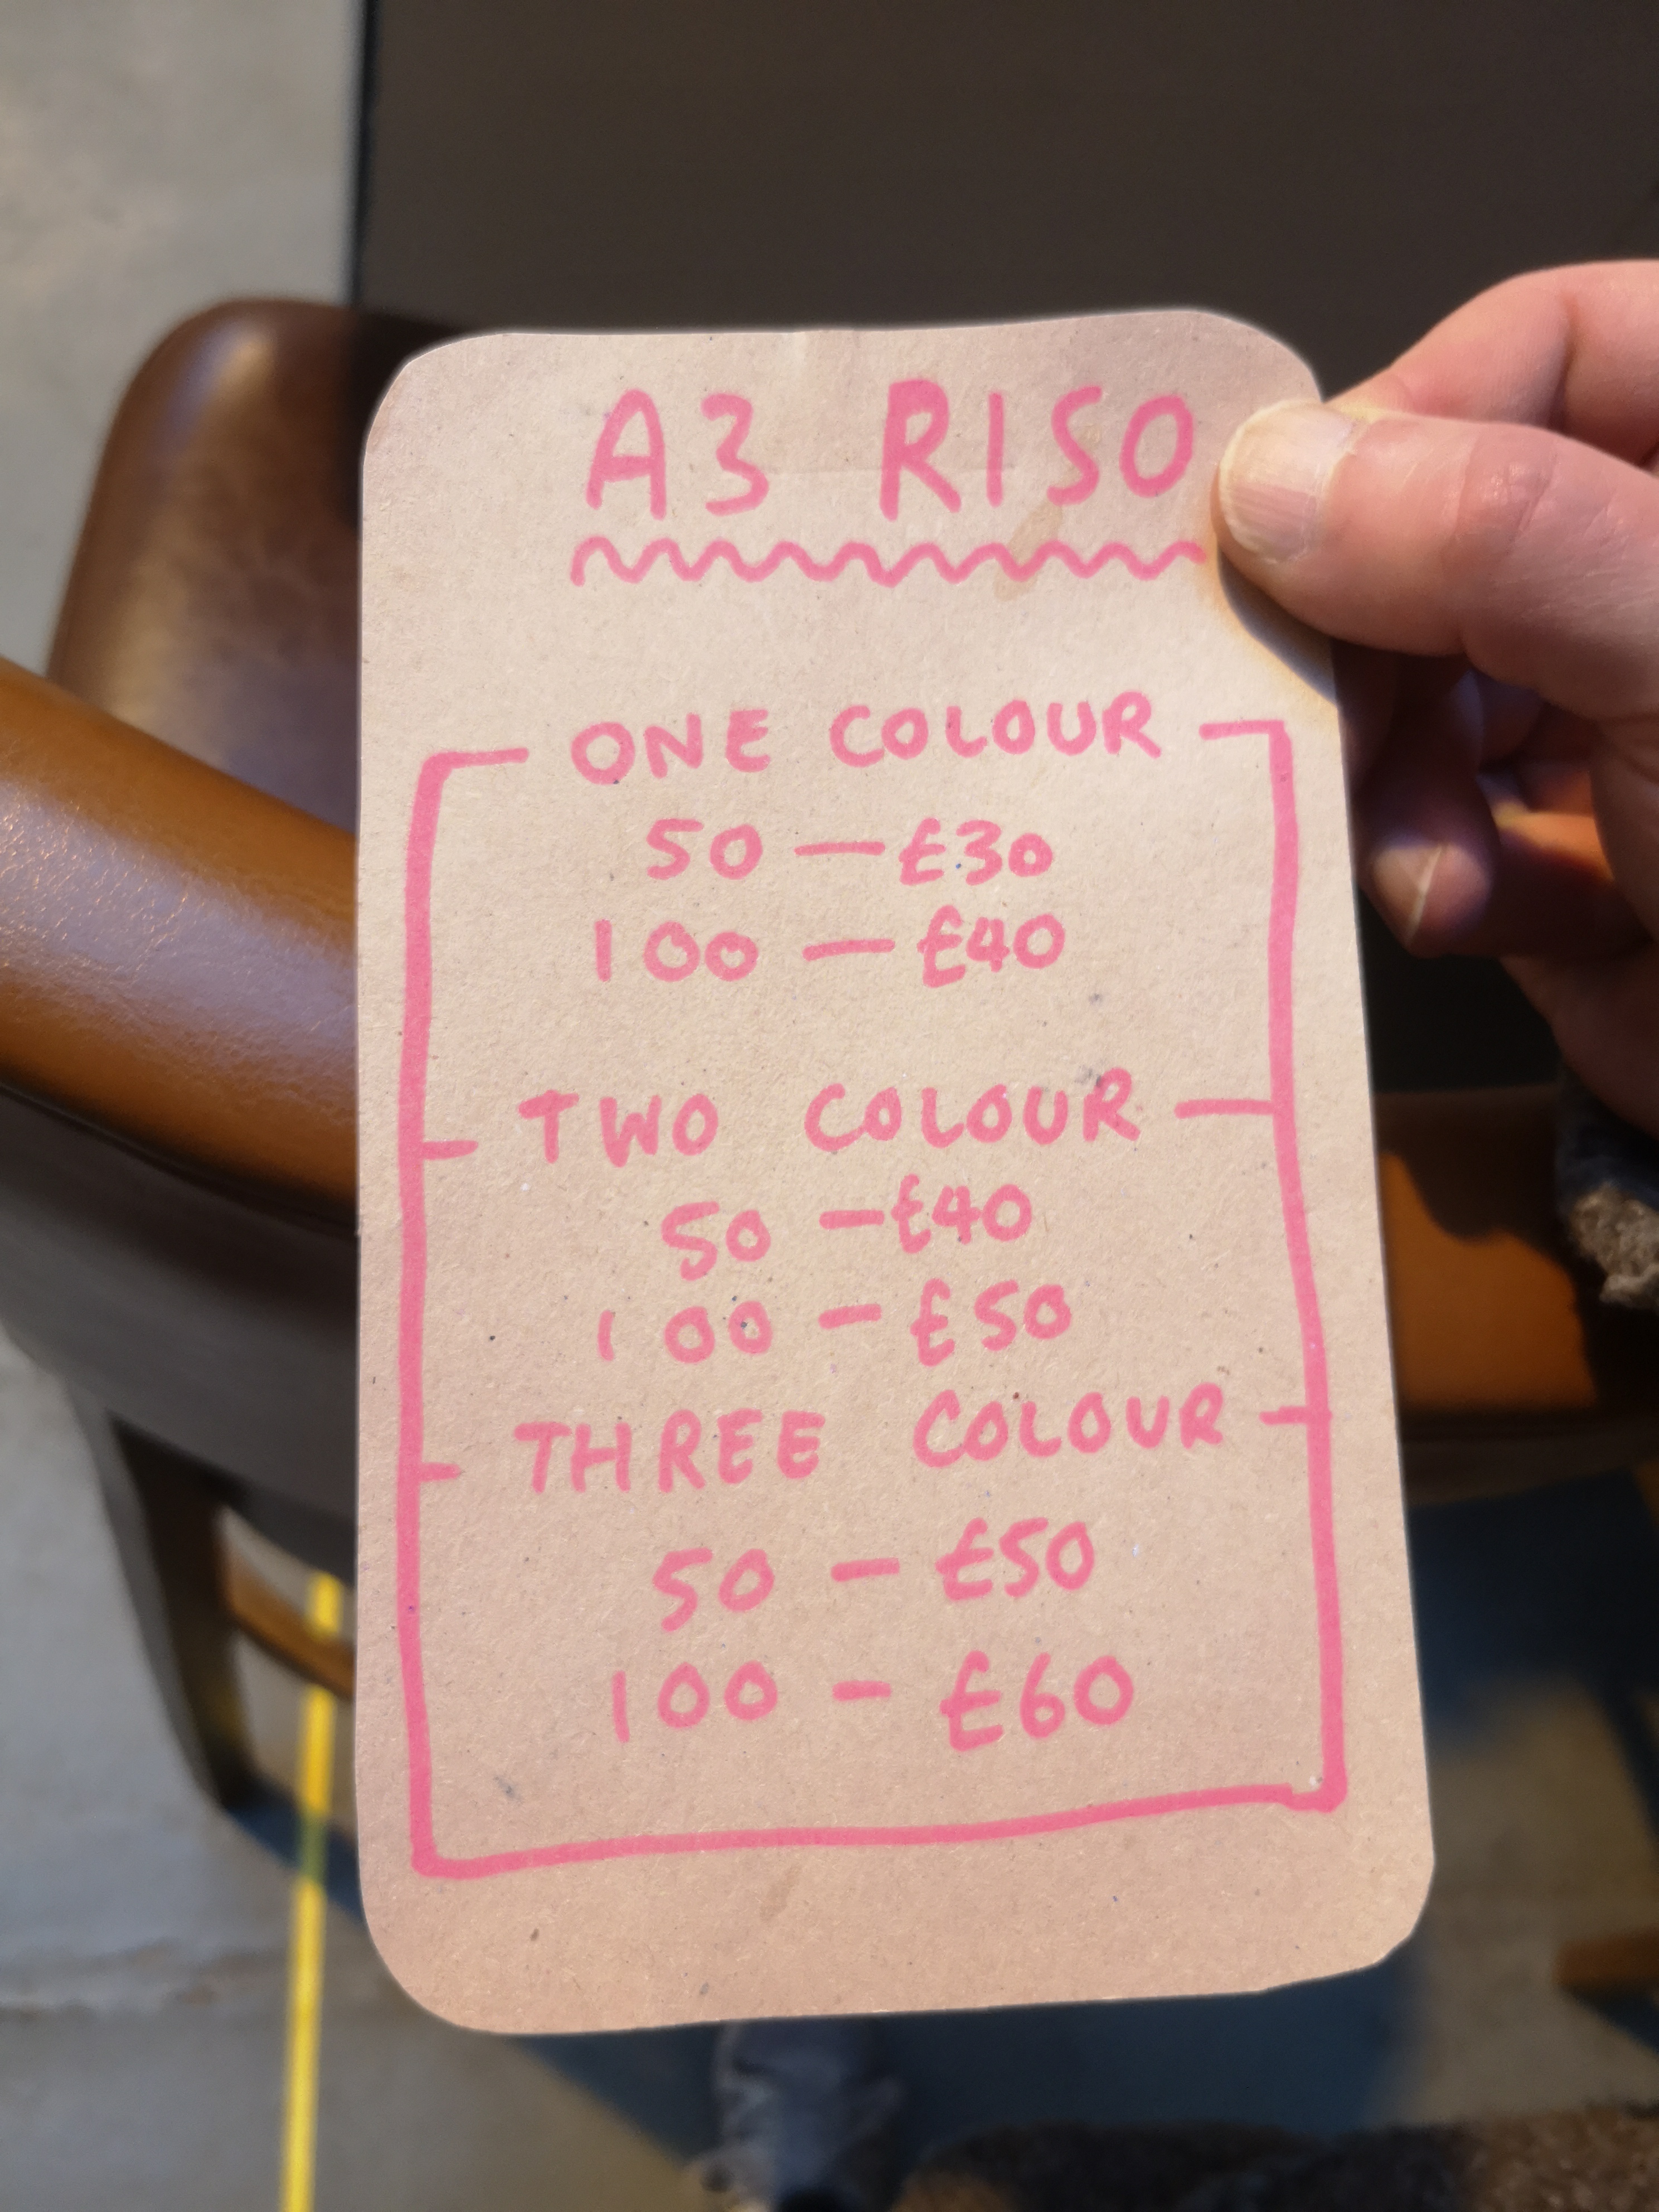 A3 RISO
ONE COLOUR
50 — £30
100 — £40
TWO COLOUR
50 — £40
100 — £50
THREE COLOUR
50 — £50
100 — £60